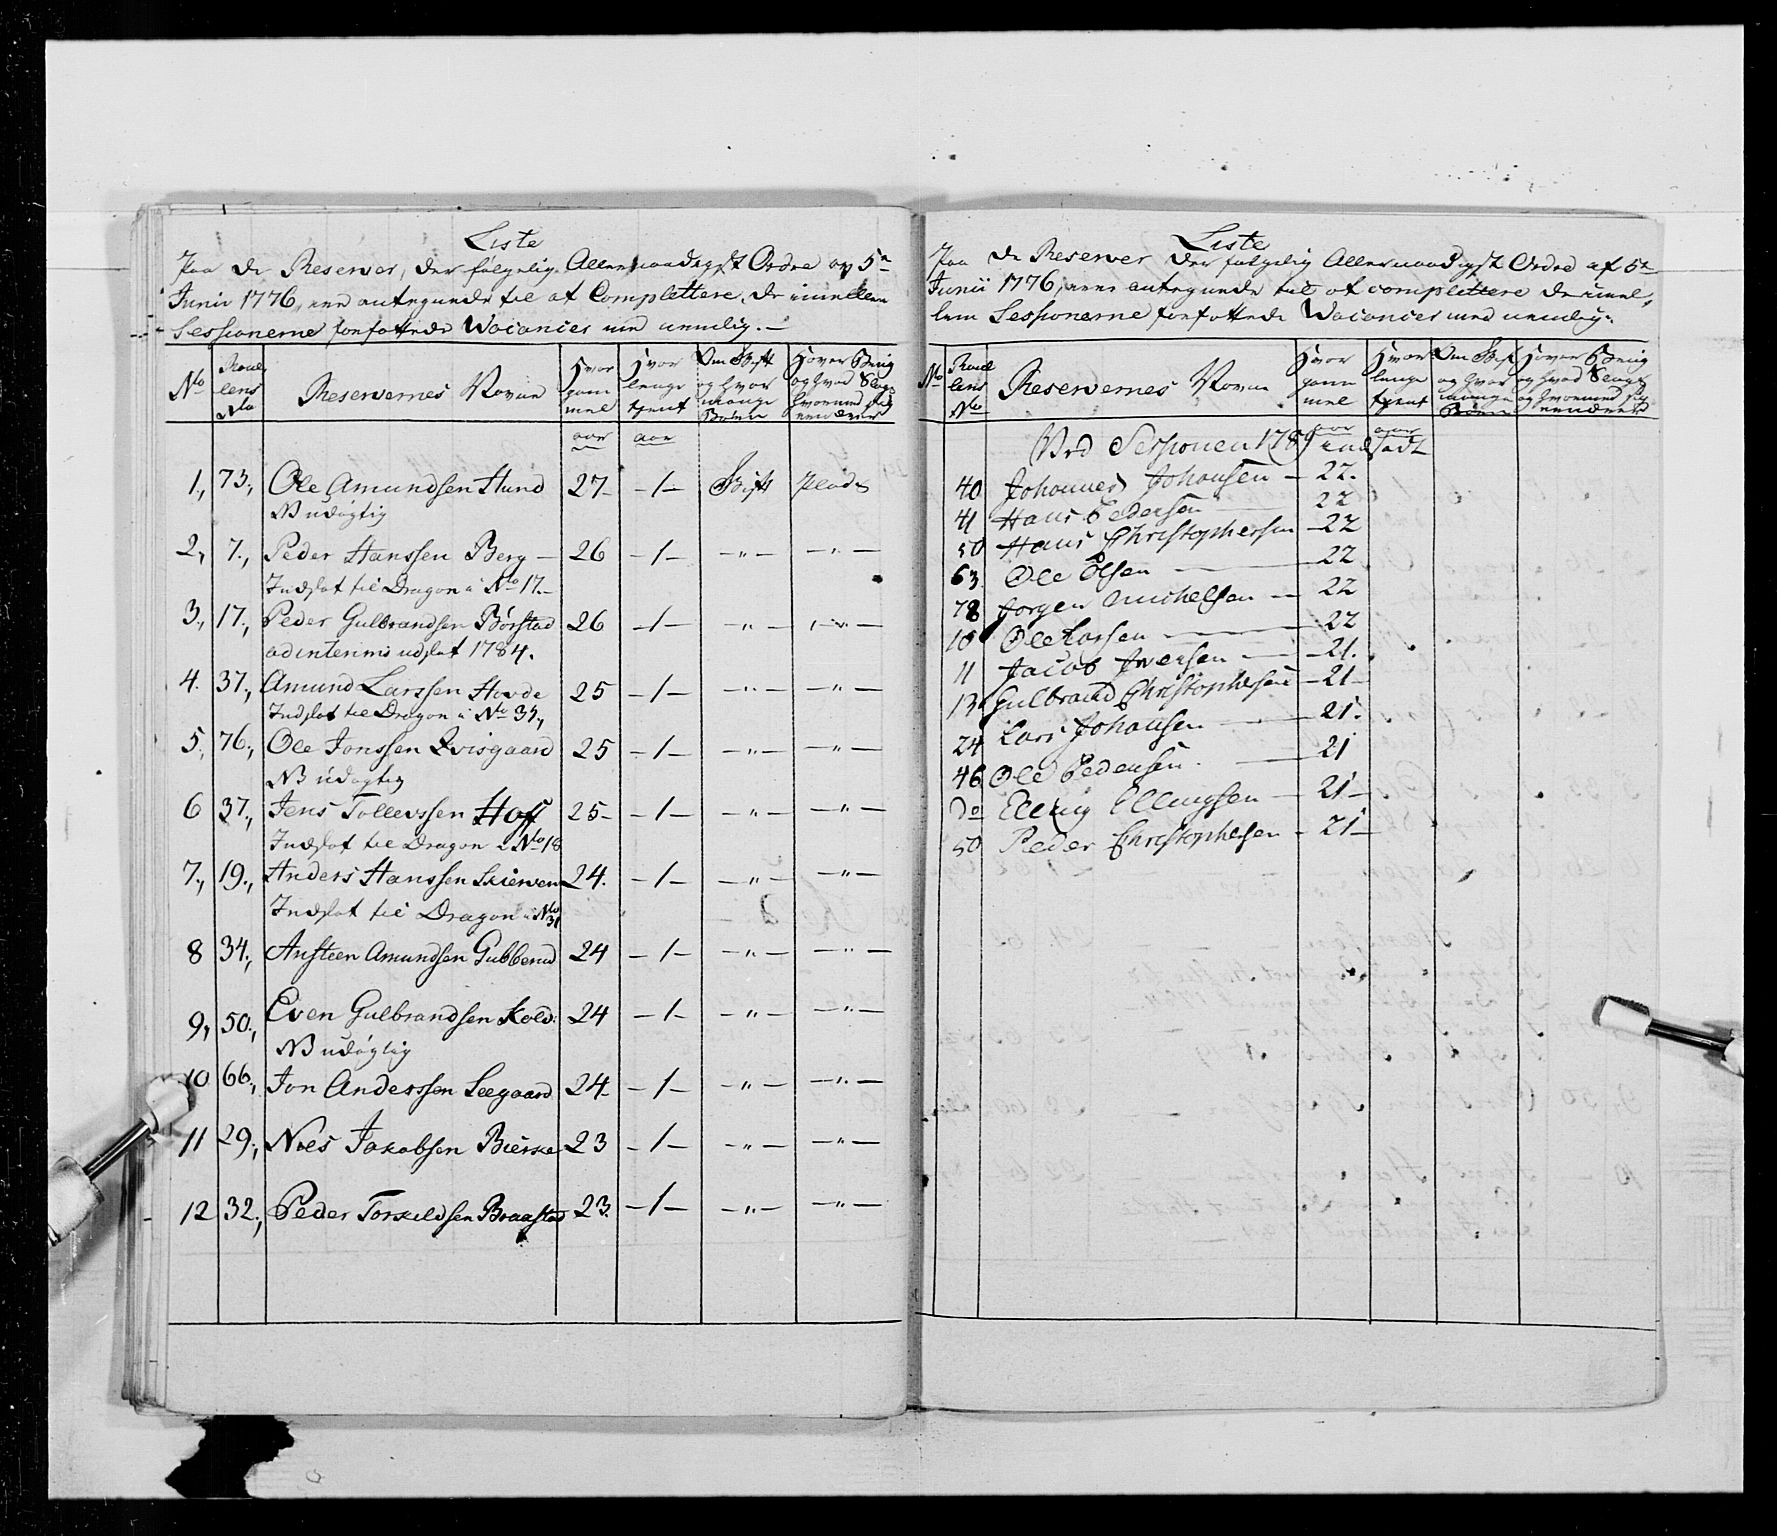 Liste
Paa de Reserver, der følgelig Allernaadigst Ordre af 5te
Junii 1776, ere antegnede til at Complettere de imellem
Sessionerne forfattede Vacancer med nemlig.—
No Roullens No Reservernes Navne Hvor gammel Hvor lenge tient Om Gift og hvor mange Børn
aar aar
1, 73, Ole Amundsen Hund 27 — 1 — Gift
NB udøgtig
2, 7, Peder Hanssen Berg — 26 — 1 — — " — — " —
Indsat til Dragon i No 17.—
3, 17, Peder Gulbrandsen Børstad 26 — 1 — — " — — " —
ad interims udsat 1784.
4. 37, Amund Larssen Hovde 25 — 1 — — " — — " —
Indsat til Dragon i No 37,
5, 76, Ole Jonssen Qvisgaard 25 — 1 — — " — — " —
NB udøgtig
6 37, Jens Tollevssen Hoff 25 — 1 — — " — — " —
Indsat til Dragon i No 18
7, 19, Anders Hanssen Skierven 24. — 1 — — " — — " —
Indsat til Dragon i No 31
8 34, Ansteen Amundsen Gubberud 24 — 1 — — " — — " —
9, 50, Even Gulbrandsen Kold: 24 — 1 — — " — — " —
NB udøgtig
10 66, Jon Anderssen Seegaard 24 — 1 — — " — — " —
11 29, Niels Jakobsen Bierke 23 — 1 — — " — — " —
12 32, Peder Torkildsen Braastad 23. — 1 — — " — — " —
Liste
Paa de Reserver der følgelig Allernaadigst Ordre af 5te
Junii 1776, ere antegnede til at complettere de imel,
lem Sessionerne forfattede Vacancer med nemlig.
No Roullens No Reservernes Navne Hvor gammel Hvor lenge tient Om Gift og hvor mange Børn
aar aar
Ved Sessionen 1789 indsadt
40 Johannes Johansen — 22.
41 Hans Pedersen 22
50 Hans Christophersen — 22
63. Ole Olsen — 22
78 Jørgen Michelsen — 22
10 Ole Larsen — 22
11 Jacob Iversen — 21.
13 Gulbrand Christophersen — 21 —
24 Lars Johansen — 21.
46 Ole Pedersen. — 21
Do Elling Ellingsen — 21 —
50 Peder Christophersen — 21 —